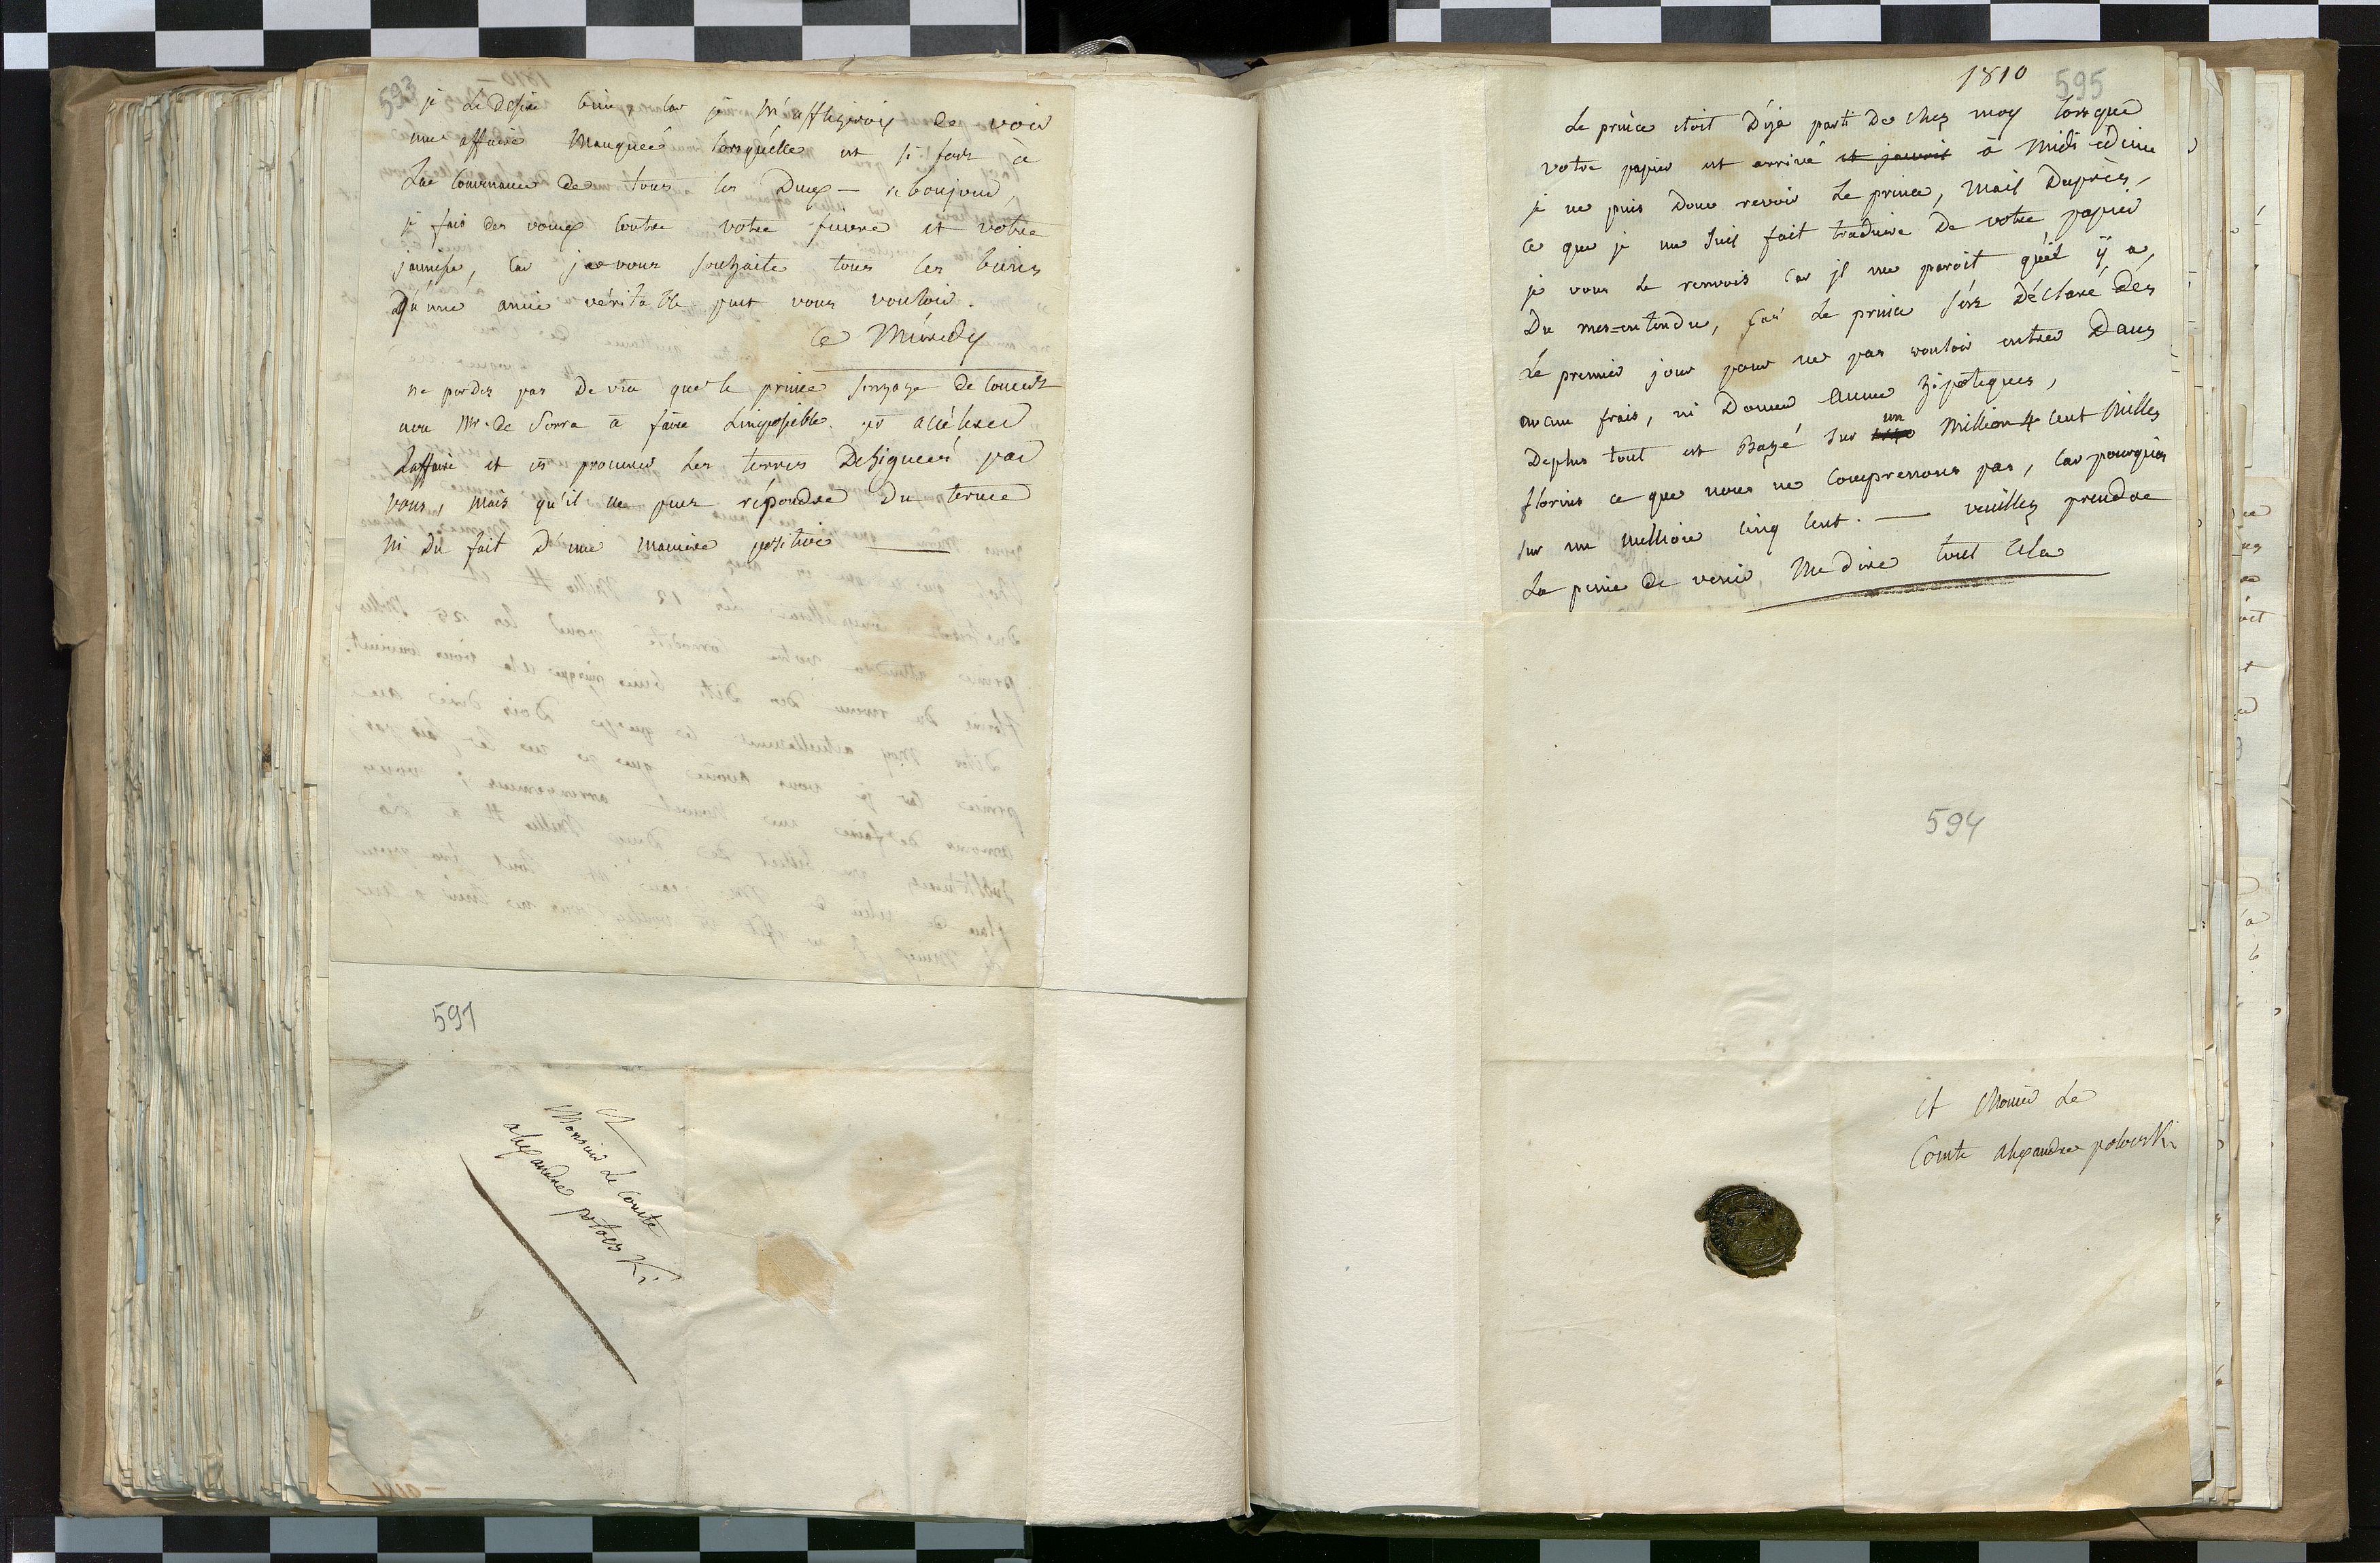 593
je le desire bien, car je m'affligerois de voir
une affaire manquée lorsquélle est si fort à
La Couvenance de tous les Deux — rebonjour,
je fais des voeux contre votre fievre et votre
jaunisse, car je vous souhaite tous les biens
qu'une amie véritable peut vous vouloir.
Ce Mércredy
ne perdez pas de vue que le prince s'engage de concert
avec Mr. de Sorra à faire L'impossible et accélerer
L'affaire et procurer les terres Designeés par
vous, mais qu'il ne peut répondre Du terme
ni Du fait D'une maniere positive
591
A
Monsieur Le Comte
alexandre potocki
1810
595
Le prince etoit Déja parti De chez moy lorsque
votre papier est arrivé et j'avois à Midi édemie
je ne puis Donc revoir Le prince, mais Daprès
ce que je me suis fait traduire De votre papier
je vous Le renvois car jl me paroit qu'il ÿ a
Du mes=entendu, car Le prince s'est Déclaré Dés
Le premier jour pour ne pas vouloir entrer Dans
aucun frais, ni Donner aucune hipoteques,
Deplus tout est Bazé sur un Million 4 cent Milles
florins ce que nous ne comprenons pas, car pourquoi
sur un million cinq cent. — veuillez prendre
La peine de venir Me dire tout cela
594
A Monsieur Le
Comte alexandre potocki